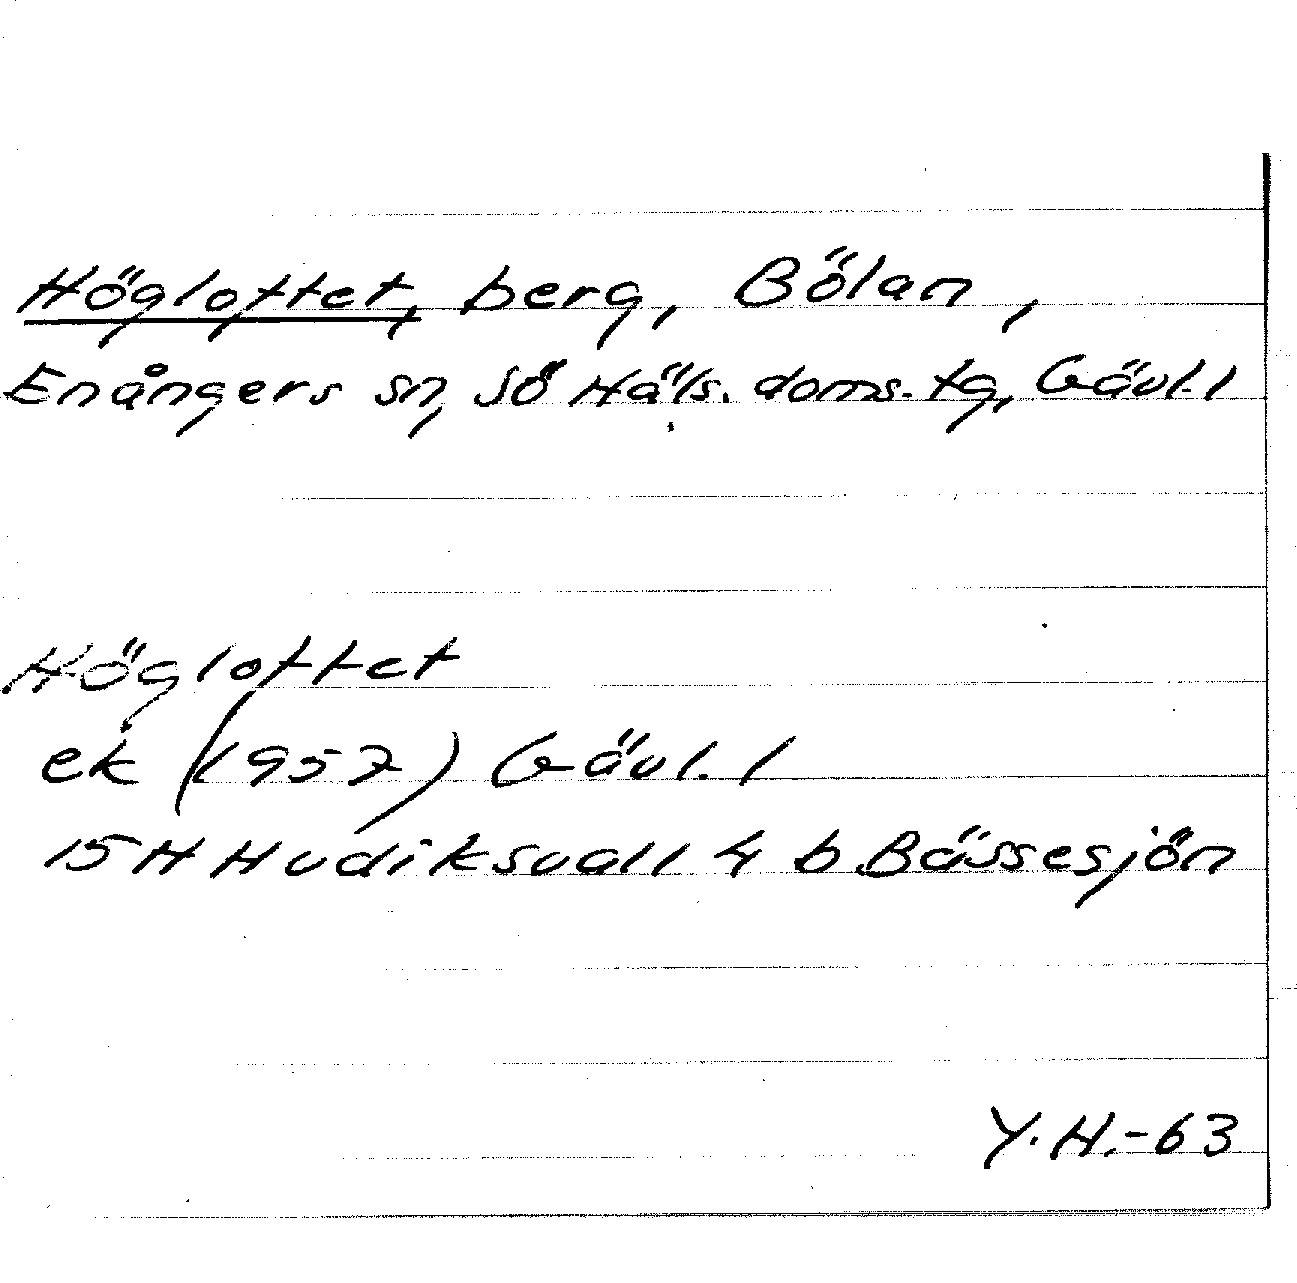 Högloftet, berg, Bölan,
Enångers sn, Sö Häls. doms. tg, Gävl. l
Högloftet
ek (1957) Gävl. l
15 H Hudiksvall 4 b Bässesjön
Y.H.-63